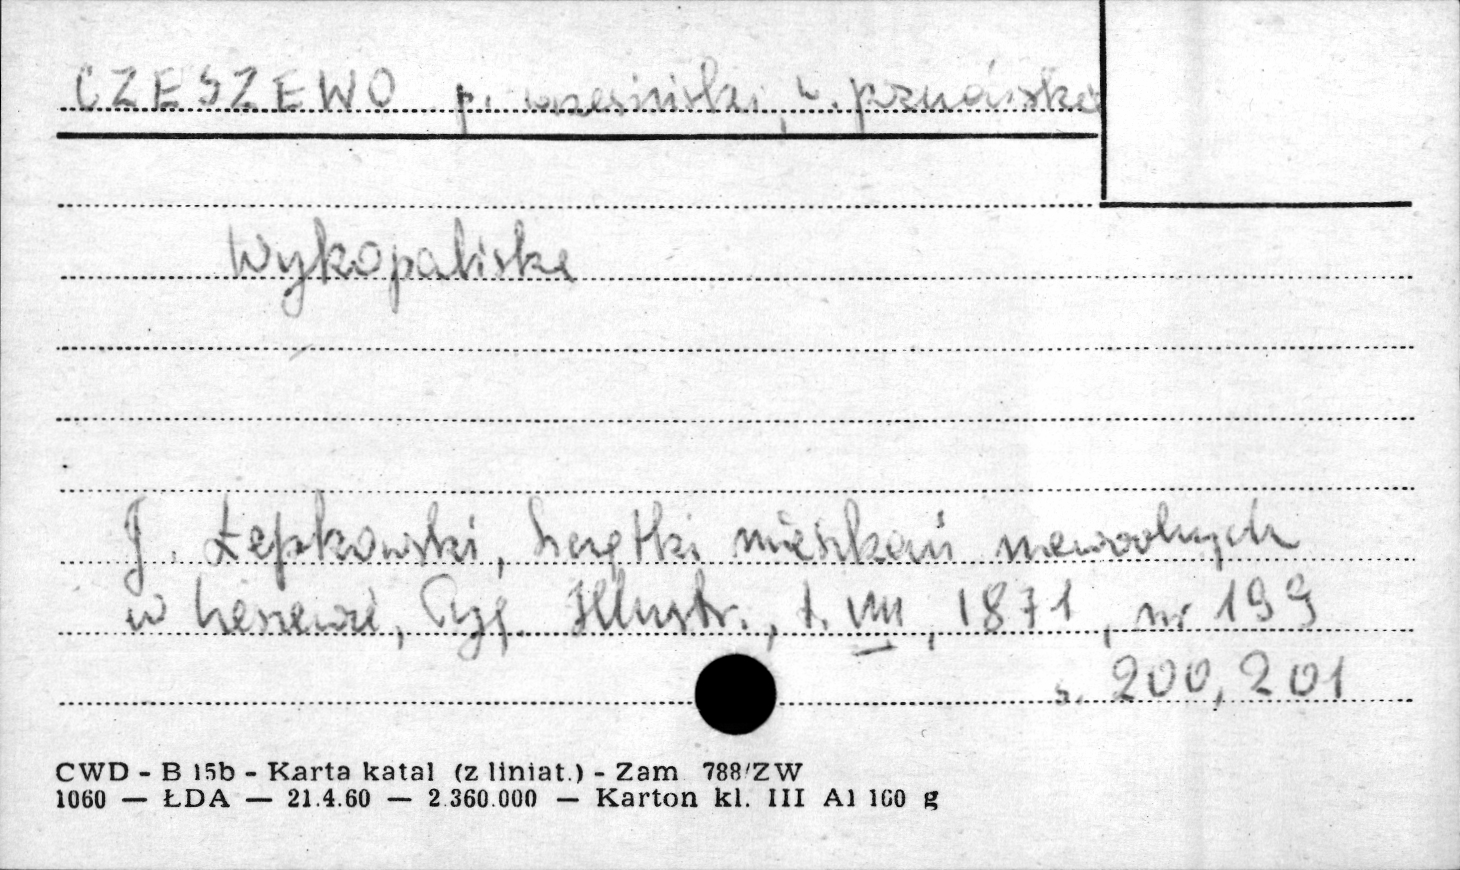 CZESZEWO p. wrzesiński, w. poznańskie
Wykopaliska
J. Łepkowski, Szczątki mieszkań nawodnych
w Czeszewie, Tyg. Illustr., t. VIII, 1871, nr 199
s. 200, 201
CWD - B 15b - Karta katal (z liniat.) - Zam 788/ZW
1060 — ŁDA — 21.4.60 — 2.360.000 — Karton kl. III A1 160 g